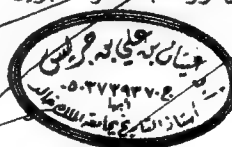 غيثان بن علي بن جريس
ج٠٥٠٣٧٢٩٣٧
أبها
أستاذ التاريخ بجامعة الملك خالد